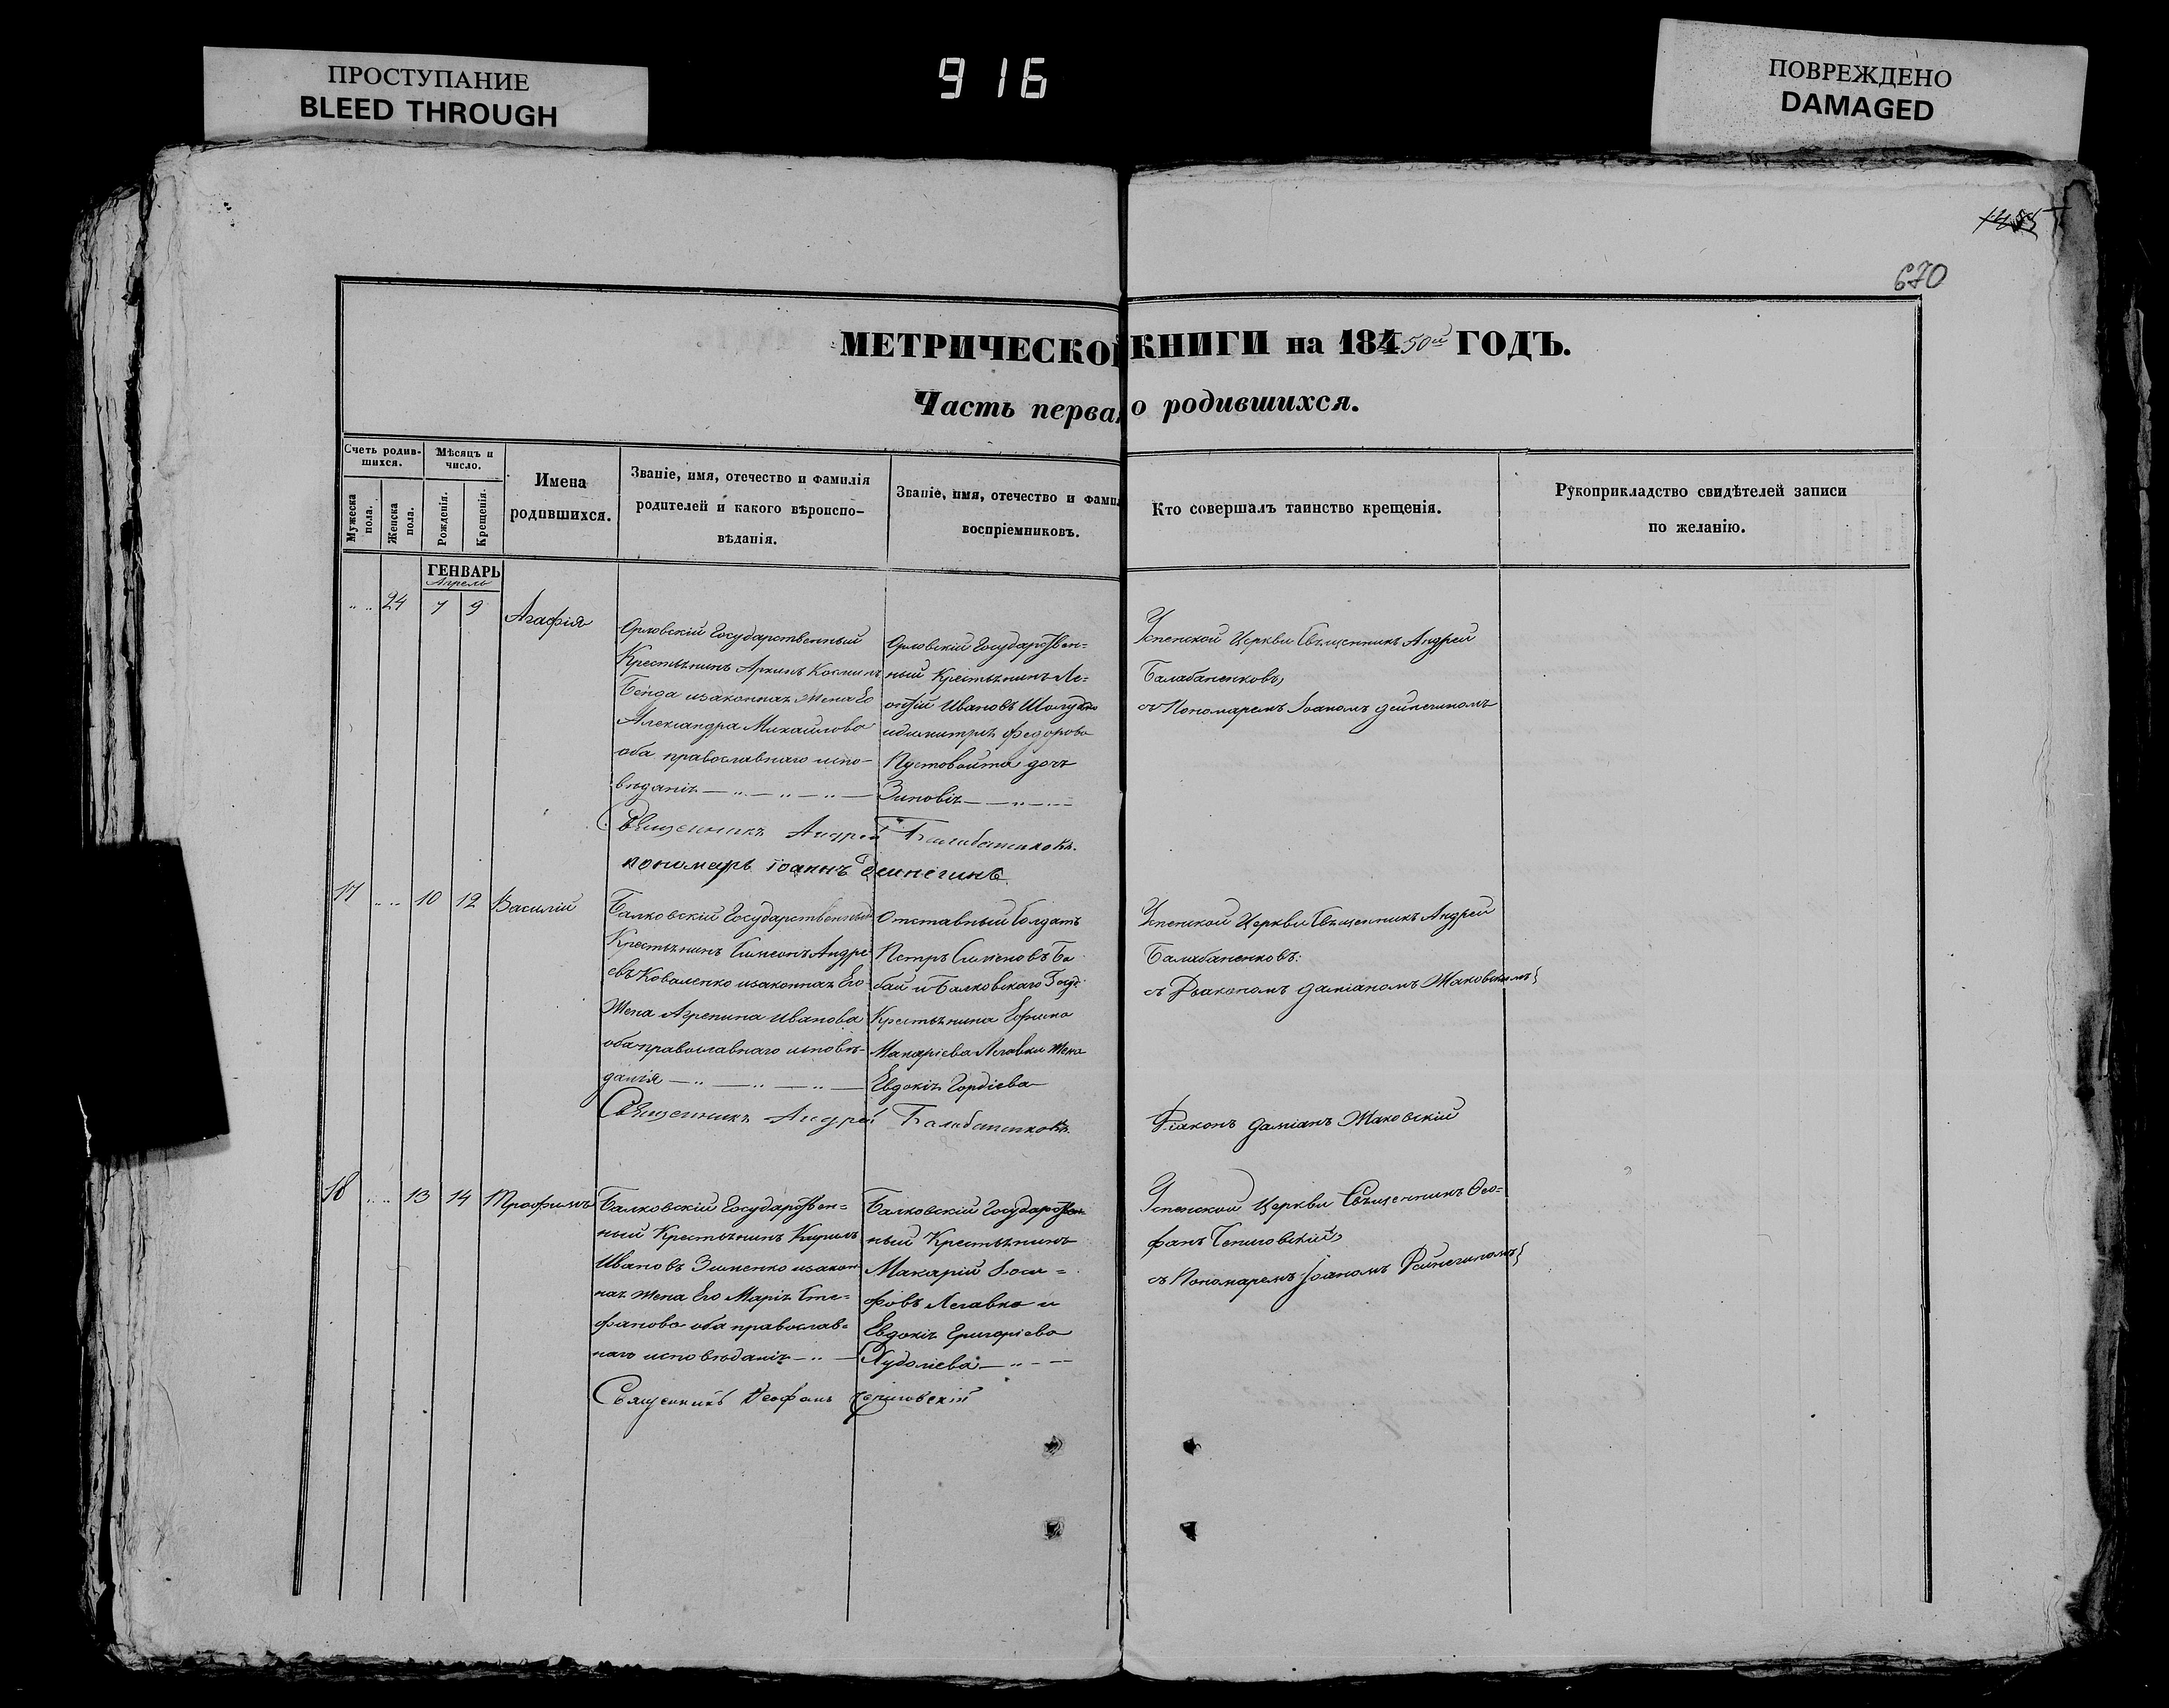 ПРОСТУПАНИЕ
BLEED THROUGH
916
ПОВРЕЖДЕНО
DAMAGED
1455
670
МЕТРИЧЕСКОЙ КНИГИ на 184 50й ГОДЪ.
Часть перва о родившихся.
Счетъ родив-
шихся.
Мужеска
пола.
Женска
пола.
Мѣсяцъ и
число.
Рожденія.
Крещенія.
Имена
родившихся.
Званіе, имя, отечество и фамилія
родителей и какого вѣроиспо-
вѣданія.
Званіе, имя, отечество и фами
воспріемниковъ.
Кто совершалъ таинство крещенія.
Рукоприкладство свидѣтелей записи
по желанію.
ГЕНВАРЬ
Апрель
24 7 9 Агафія
Орловскій Государственный
Крестьянинъ Архипъ Косминъ
Бенда изаконная жена Его
Александра Михайлова
оба православнаго испо-
вѣданія
Орловскій Государствен-
ный Крестьянинъ Ле-
онтій Ивановъ
идимитрія Федорова
Пустовойта дочь
Зиновія
Успенской Церкви Священникъ Андрей
Балабаненковъ,
съ Пономаремъ Іоаномъ Дейнегиномъ
Священникъ Андрей Балабаненковъ.
пономарь Іоаннъ Дейнегинъ
17 10 12 Василій
Балковскій Государственный
Крестьянинъ Симеонъ Андре
евъ Коваленко изаконная Его
жена Агрепина Иванова
оба православнаго исповѣ-
данія
Отставный Солдатъ
Петръ Сименовъ Ба
бай и Балковскаго Госуд
Крестьянина Ефима
Макаріева Легавки жена
Евдокія Гордіева
Успенской Церкви Священникъ Андрей
Балабаненковъ:
съ Діакономъ Даміаномъ Маковскимъ
Священникъ Андрей Балабаненковъ.
Діаконъ Даміанъ Маковскій
18 13 14 Трофимъ
Балковскій Государствен=
ный Крестьянинъ Кирилъ
Ивановъ Зименко изакон
ная жена Его Марія Сте=
фанова оба православ=
наго исповѣданія
Балковскій Государствен
ный Крестьянинъ
Макарій Іоси=
фовъ Легавка и
Евдокія Григоріева
Худоліева
Успенской Церкви Священникъ Фео=
фанъ Черниговскій,
съ Пономаремъ Іоаномъ Дейнегиномъ
Священникъ Феофанъ Черниговскій